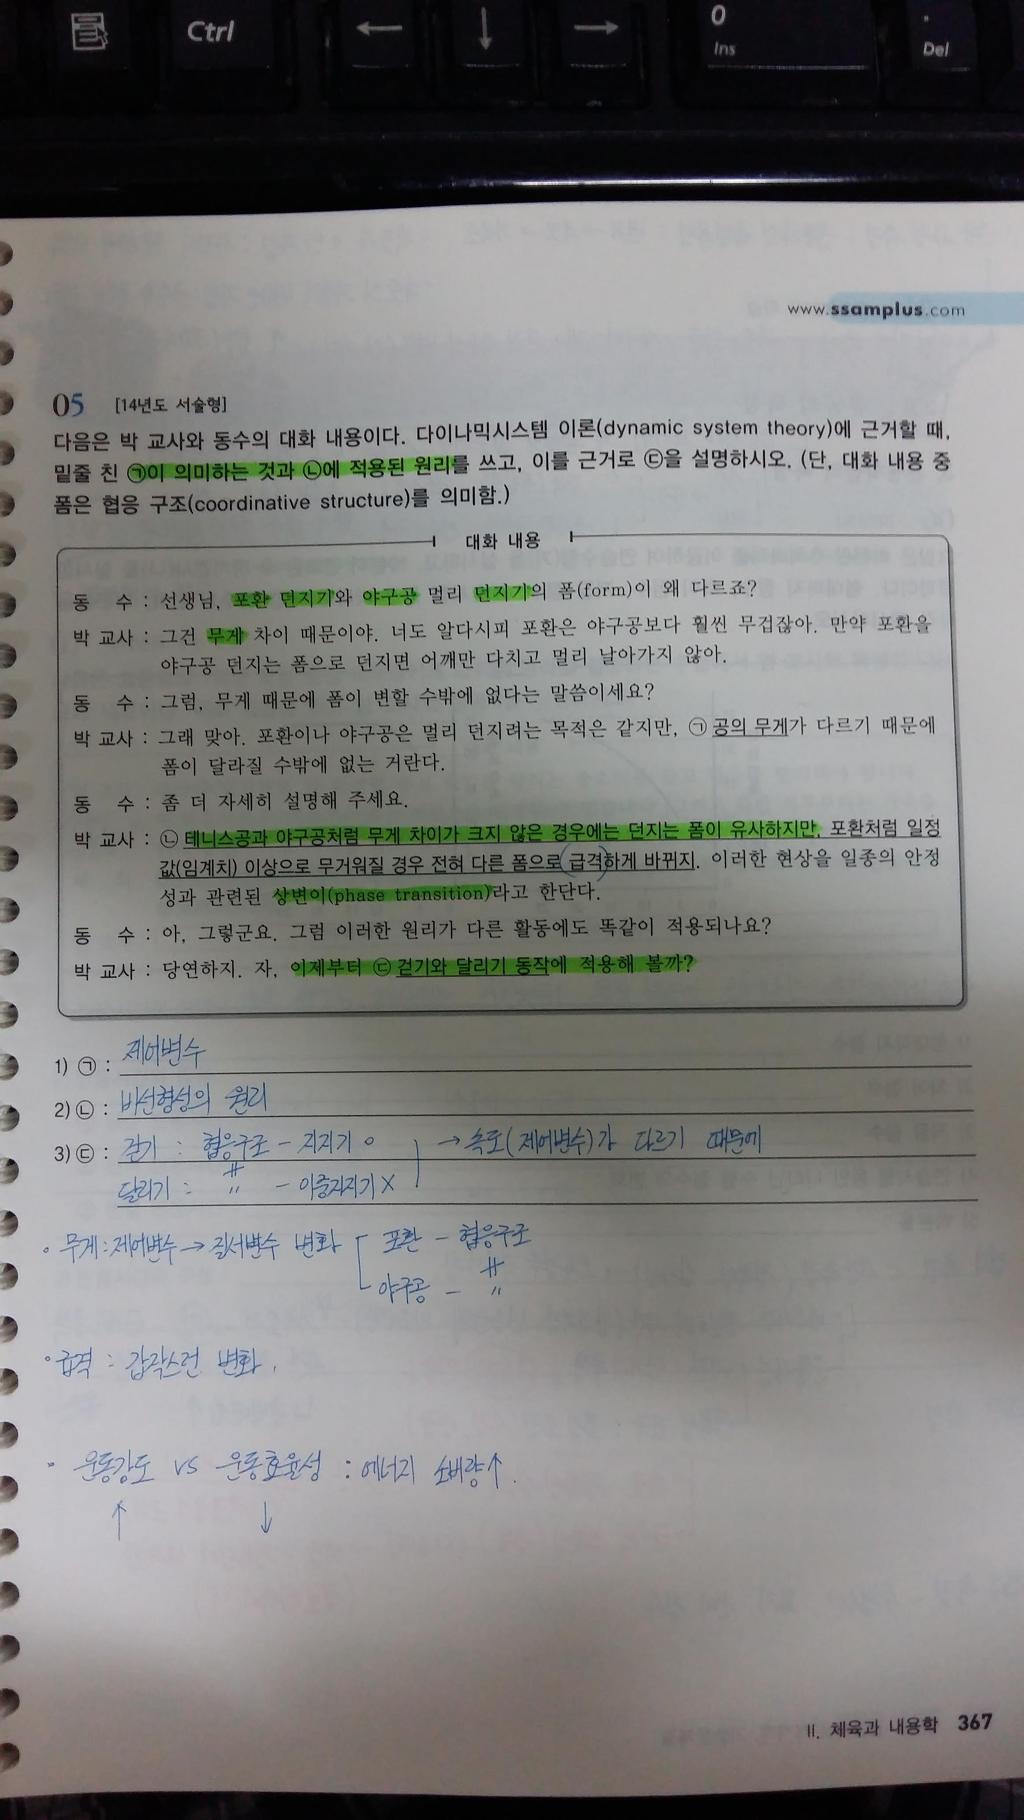 Ctrl
←
↓
→
0
Ins
.
Del
www.ssamplus.com
05 [14년도 서술형]
다음은 박 교사와 동수의 대화 내용이다. 다이나믹시스템 이론(dynamic system theory)에 근거할 때,
밑줄 친 ㉠이 의미하는 것과 ㉡에 적용된 원리를 쓰고, 이를 근거로 ㉢을 설명하시오. (단, 대화 내용 중
폼은 협응 구조(coordinative structure)를 의미함.)
대화 내용
동 수 : 선생님, 포환 던지기와 야구공 멀리 던지기의 폼(form)이 왜 다르죠?
박 교사 : 그건 무게 차이 때문이야. 너도 알다시피 포환은 야구공보다 훨씬 무겁잖아. 만약 포환을
야구공 던지는 폼으로 던지면 어깨만 다치고 멀리 날아가지 않아.
동 수 : 그럼, 무게 때문에 폼이 변할 수밖에 없다는 말씀이세요?
박 교사 : 그래 맞아. 포환이나 야구공은 멀리 던지려는 목적은 같지만, ㉠ 공의 무게가 다르기 때문에
폼이 달라질 수밖에 없는 거란다.
동 수 : 좀 더 자세히 설명해 주세요.
박 교사 : ㉡ 테니스공과 야구공처럼 무게 차이가 크지 않은 경우에는 던지는 폼이 유사하지만, 포환처럼 일정
값(임계치) 이상으로 무거워질 경우 전혀 다른 폼으로 급격하게 바뀌지. 이러한 현상을 일종의 안정
성과 관련된 상변이(phase transition)라고 한단다.
동 수 : 아, 그렇군요. 그럼 이러한 원리가 다른 활동에도 똑같이 적용되나요?
박 교사 : 당연하지. 자, 이제부터 ㉢ 걷기와 달리기 동작에 적용해 볼까?
1) ㉠ : 제어변수
2) ㉡ : 비선형성의 원리
3) ㉢ : 걷기 : 협응구조 - 지지기 o → 속도(제어변수)가 다르기 때문에
∦
달리기 : 〃 - 이중지지기 X
• 무게 : 제어변수 → 질서변수 변화 포환 - 협응구조
∦
야구공 - 〃
• 급격 : 갑작스런 변화.
• 운동강도 vs 운동효율성 : 에너지 소비량↑.
↑ ↓
II. 체육과 내용학 367